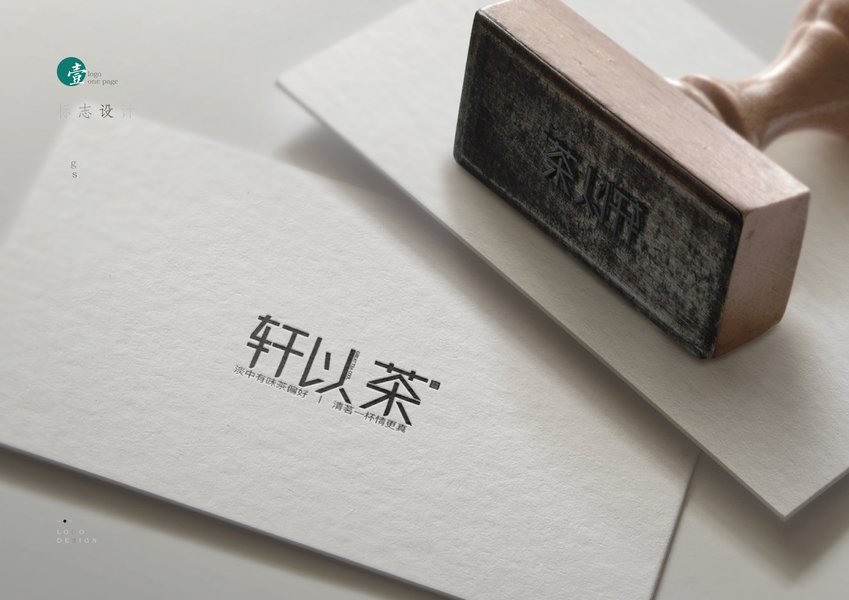 壹
logo
one page
标志设计
g
s
轩以茶
淡中有味茶偏好 | 清茗一杯情更真
茶以轩
LOGO
DESIGN